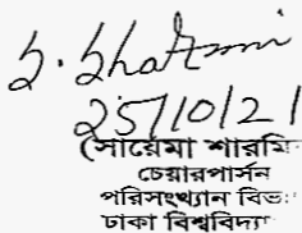 25/10/21
(সায়েমা শারমি
চেয়ারপার্সন
পরিসংখ্যান বিভ
ঢাকা বিশ্ববিদ্যা